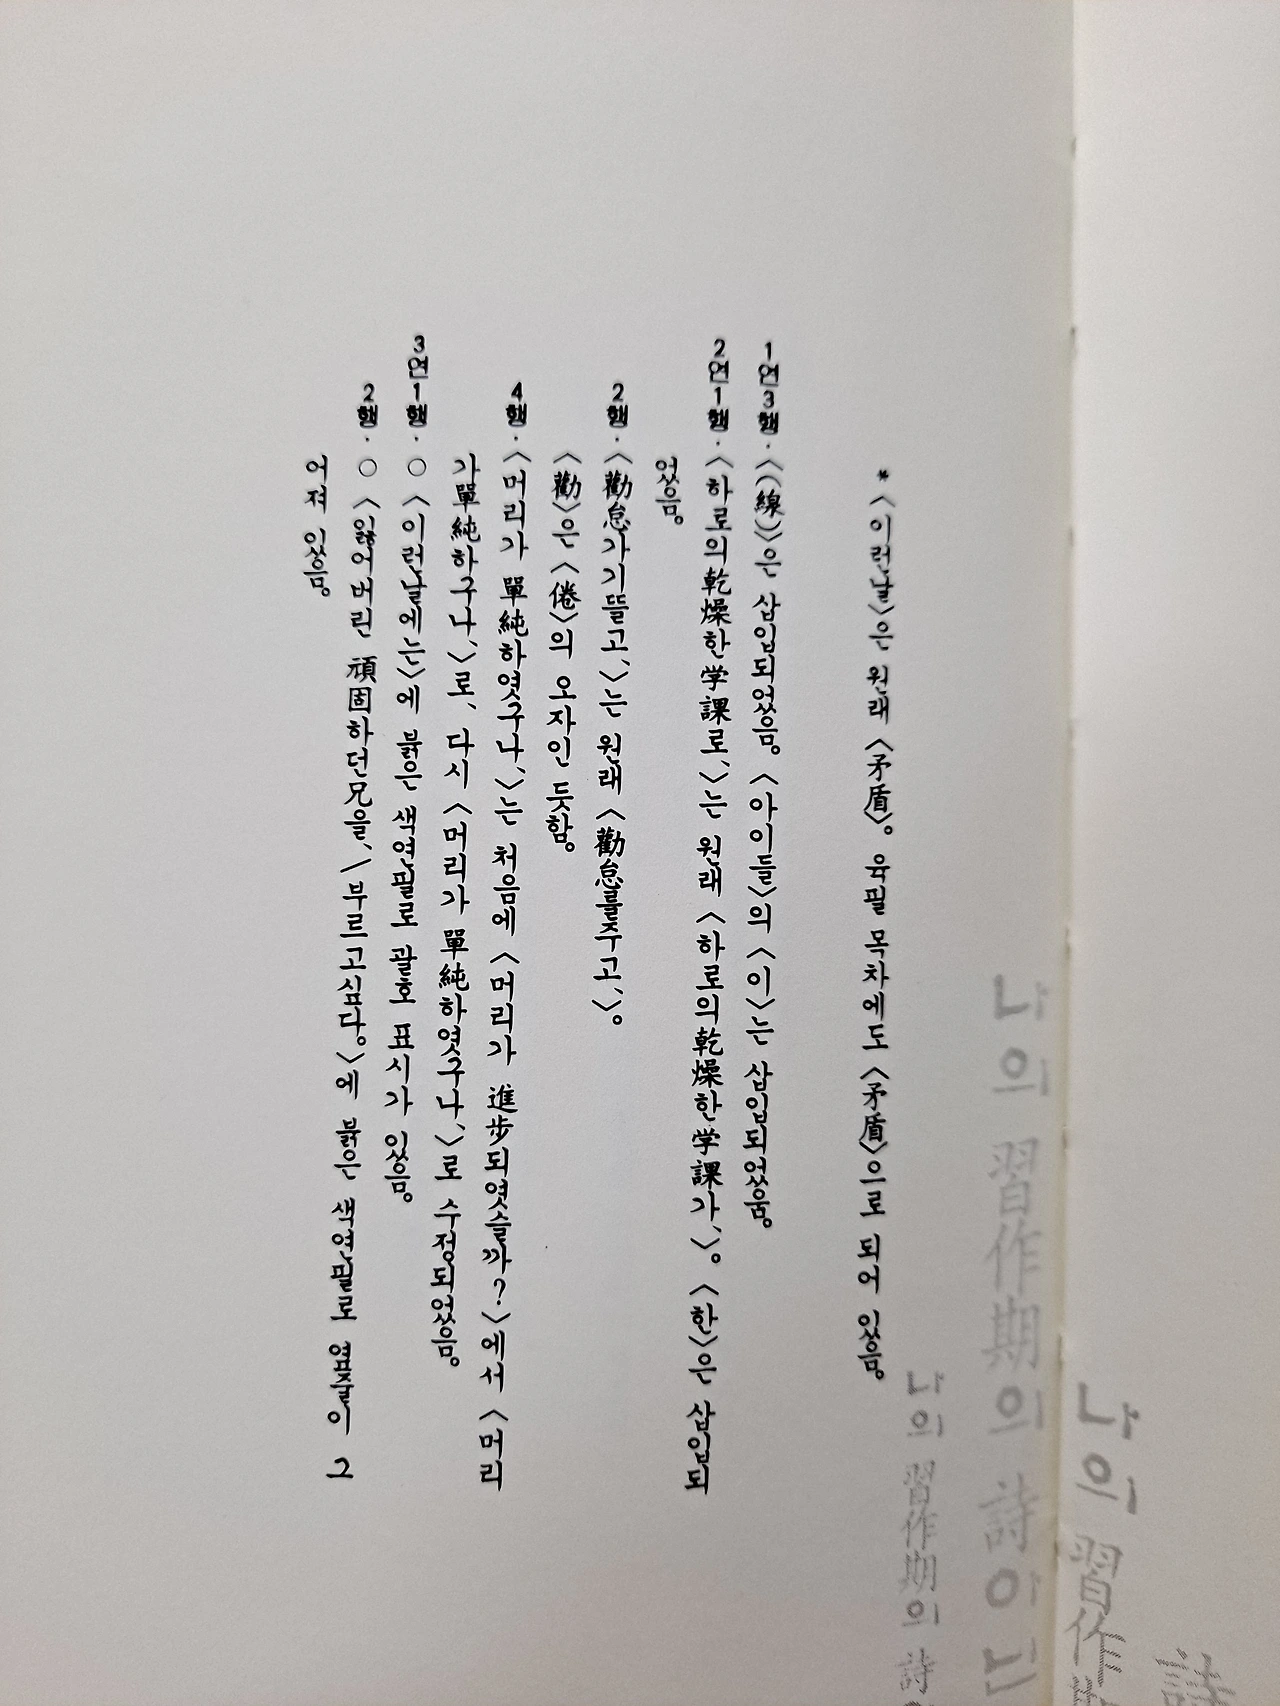 *〈이런날〉은 원래 〈矛盾〉。 육필 목차에도 〈矛盾〉으로 되어 있음。
1연3행. 〈(線)〉은 삽입되었음。 〈아이들〉의 〈이〉는 삽입되었움。
2연1행. 〈하로의乾燥한学課로、〉는 원래 〈하로의乾燥한学課가、〉。 〈한〉은 삽입되
었음。
2행. 〈勸怠가기뜰고、〉는 원래 〈勸怠를주고、〉。
〈勸〉은 〈倦〉의 오자인 듯함。
4행. 〈머리가 單純하엿구나、〉는 처음에 〈머리가 進步되엿슬까?〉에서 〈머리
가單純하구나、〉로、 다시 〈머리가 單純하엿구나、〉로 수정되었음。
3연1행. ○ 〈이런날에는〉에 붉은 색연필로 괄호 표시가 있음。
2행. ○ 〈잃어버린 頑固하던兄을、/부르고싶다。〉에 붉은 색연필로 옆줄이 그
어져 있음。
나의 習作期의 詩
나의 習作期의 詩아닌
나의 習作
詩